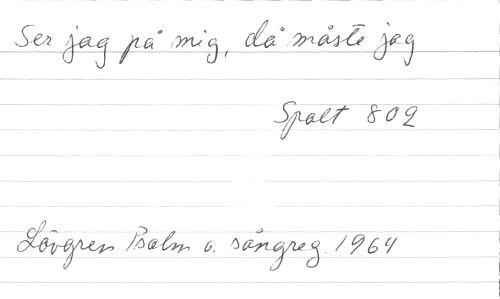 Ser jag på mig, då måste jag
Spalt 802
Lövgren Psalm o. sångreg. 1964